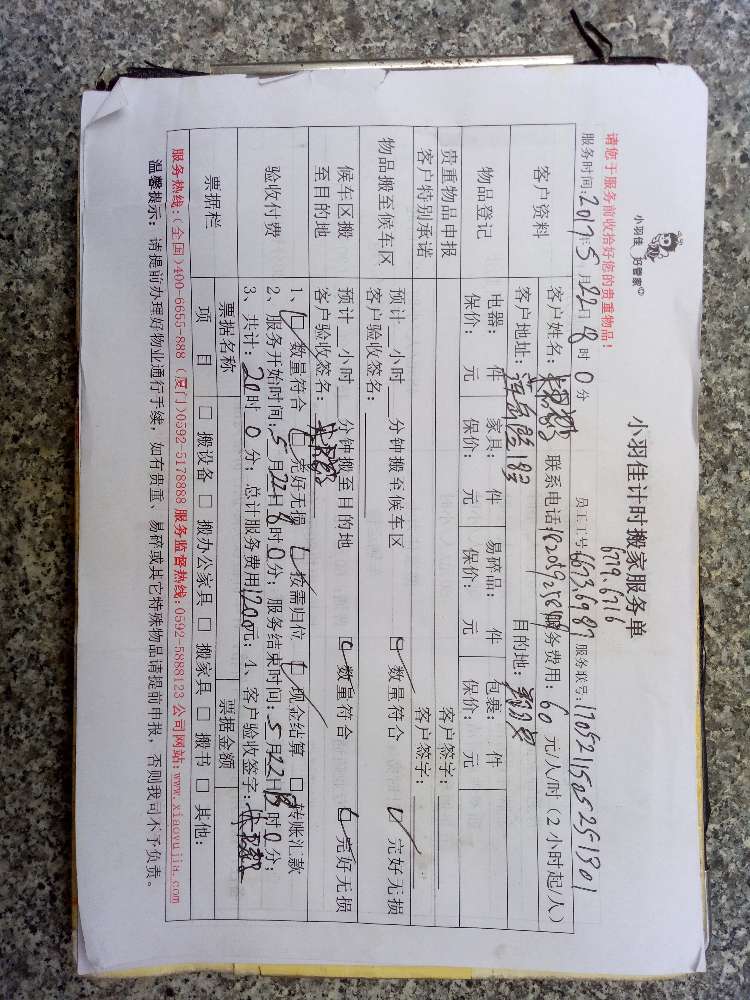 小羽佳 好管家
小羽佳计时搬家服务单
请您于服务前收拾好您的贵重物品!
6716.6716
服务时间: 2017年5月22日8时0分 员工工号: 6673 6987 服务账号: 170521150525 1301
客户资料
客户姓名: 联系电话 服务费用: 60 元/人/时(2小时起/人)
客户地址: 目的地:
物品登记
电器: 件 家具: 件 易碎品: 件 包裹: 件
保价: 元 保价: 元 保价: 元 保价: 元
贵重物品申报 客户签字:
客户特别承诺 客户签字:
物品搬至候车区
预计 小时 分钟搬至候车区 数量符合 完好无损
客户验收签名:
候车区搬至目的地
预计 小时 分钟搬至目的地 数量符合 完好无损
客户验收签名:
验收付费
1、数量符合 完好无损 按需归位 现金结算 转账汇款
2、服务开始时间: 5月22日8时0分; 服务结束时间: 5月22日18时0分;
3、共计: 20时0分; 总计服务费用1200元; 4、客户验收签字:
票据栏
票据名称 票据金额
项 目 搬设备 搬办公家具 搬家具 搬书 其他:
服务热线:(全国)400-6655-888 (厦门)0592-5178888 服务监督热线:0592-5888123 公司网站:www.xiaoyujia.com
温馨提示: 请提前办理好物业通行手续, 如有贵重、易碎或其它特殊物品请提前申报, 否则我司不予负责。